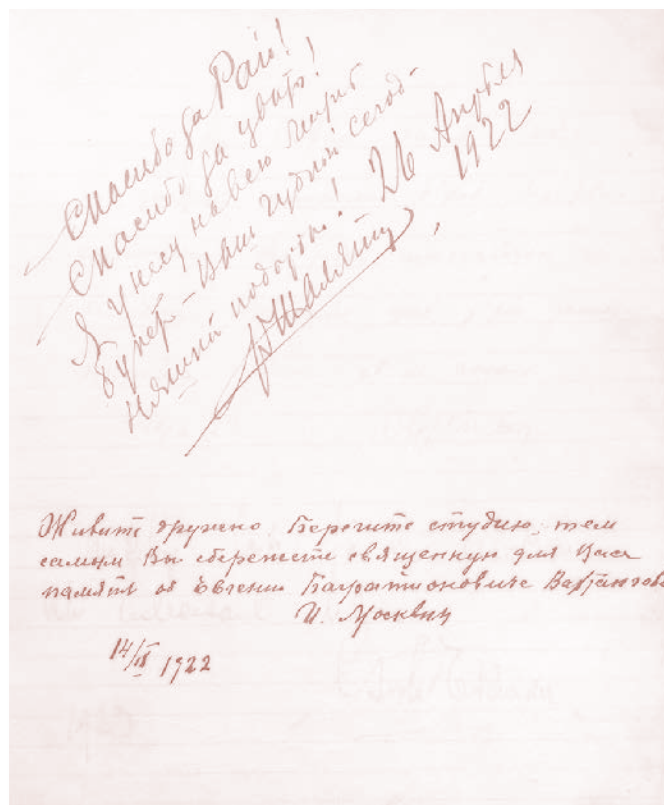 Спасибо за Рай!
Спасибо за цвѣты!
Я унесу на всю жизнь
букет – Ваш чудный сегод-
няшний подарок! 26 Апрѣля
1922
Ф Шаляпин
Живите дружно. Берегите студию, тем
самым Вы сбережете священную для Вас
память об Евгении Багратионовиче Вахтангове
И. Москвин
14/IX 1922